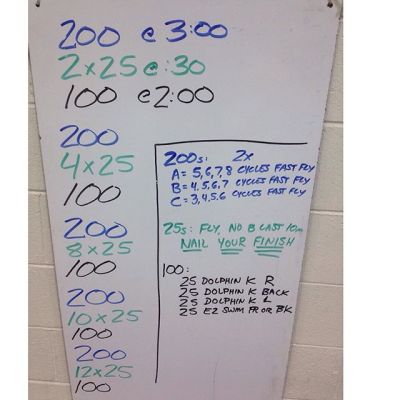 200 @ 3:00
2x25 @ :30
100 @ 2:00
200
4x25
100
200
8x25
100
200
10x25
100
200
12x25
100
200s: 2x
A= 5,6,7,8 CYCLES FAST FLY
B= 4,5,6,7 CYCLES FAST FLY
C= 3,4,5,6 CYCLES FAST FLY
25s: FLY, NO B LAST 10m
NAIL YOUR FINISH
100:
25 DOLPHIN K R
25 DOLPHIN K BACK
25 DOLPHIN K L
25 EZ SWIM FR OR BK